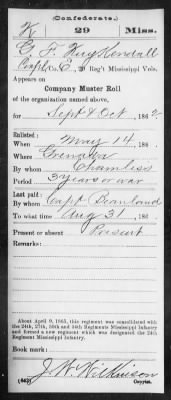 (Confederate.)
K 29 Miss.
G. F. Kuykendall
Co. E, 29 Reg't Mississippi Vols.
Appears on
Company Muster Roll
of the organization named above,
for Sept & Oct, 1862.
Enlisted:
When May 14, 186 .
Where Grenada
By whom Chamliss
Period 3 years or war
Last paid:
By whom Capt.
To what time Aug 31, 186 .
Present or absent Present
Remarks:
About April 9, 1865, this regiment was consolidated with
the 24th, 27th, 30th and 34th Regiments Mississippi Infantry
and formed a new regiment which was designated the 24th
Regiment Mississippi Infantry.
Book mark:
J. W. Wilkinson
(642) Copyist.